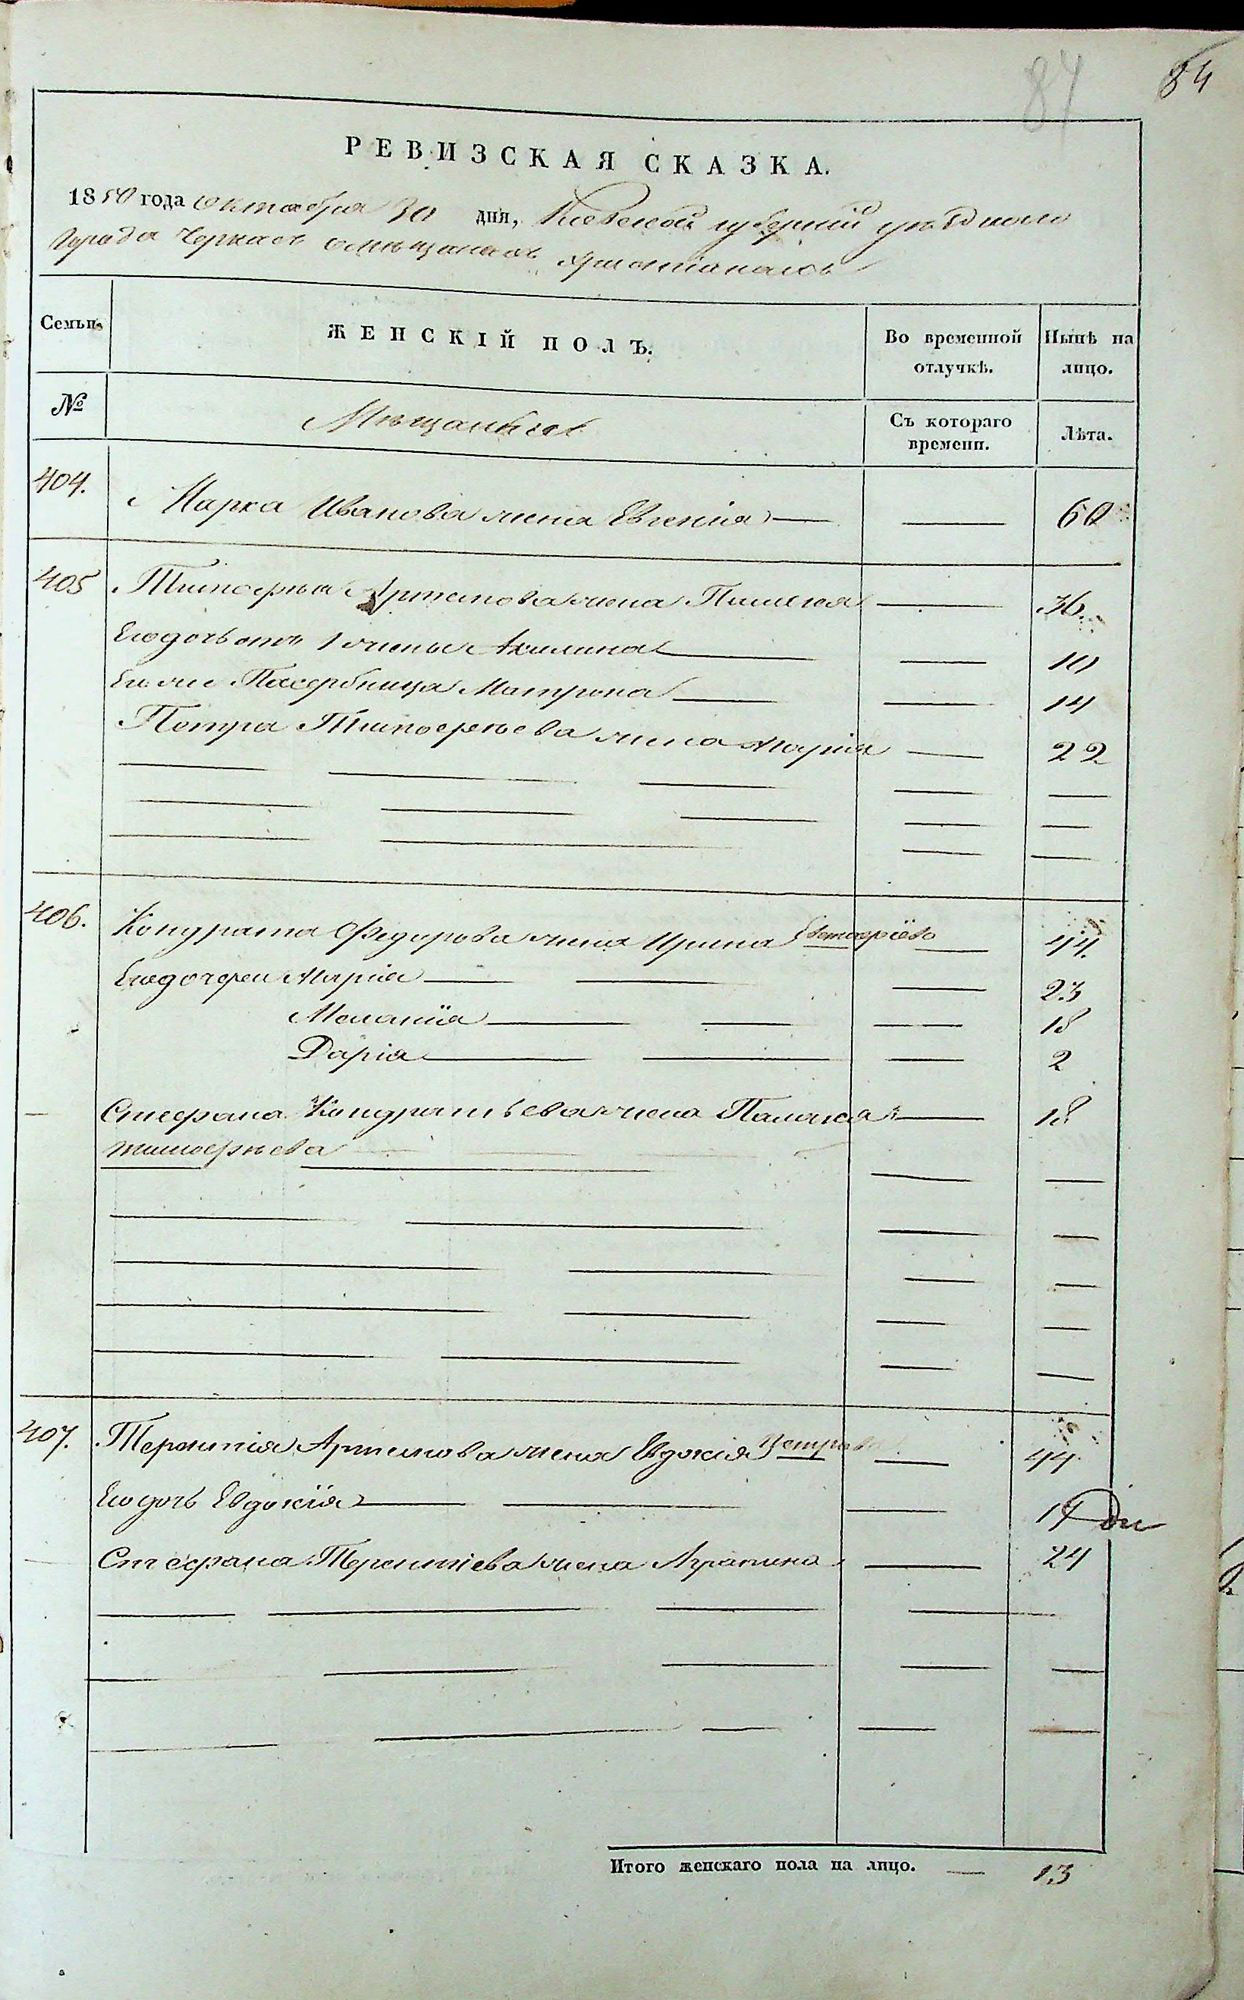 84
84
РЕВИЗСКАЯ СКАЗКА.
1850 года октября 30 дня, Киевской губернии уѣзднаго
города Черкасъ о мѣщанахъ христіанахъ
Семьи. ЖЕНСКІЙ ПОЛЪ. Во временной отлучкѣ. Нынѣ на лицо.
№ Мѣщанъ Съ котораго времени. Лѣта.
404. Марка Иванова жена Евгенія 60
405 Тимофея Артемова жена Пелагея 36.
Его дочь отъ 1 жены Акилина 10
Ея же Пасербница Матрона 14
Петра Тимофеева жена Марія 22
406. Кондрата Федорова жена Ирина 44.
Его дочери Марія 23
Меланія 18
Дарія 2
Стефана Кондратьева жена Палажка 18
Тимофѣева
407. Терентія Артемова жена Евдокія Петрова 44
Его дочь Евдокія 14
Стефана Терентіева жена Агрипина 24
Итого женскаго пола на лицо. — 13